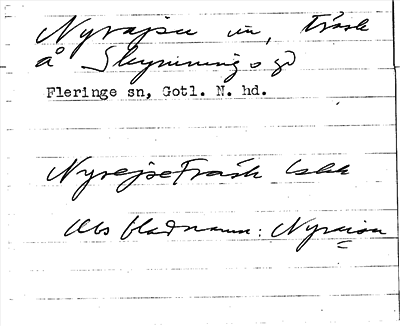 Nyrajsu un, träsk
å Skymnings gd
Fleringe sn, Gotl. N. hd.
Nyrejseträsk
Obs bladnamn: Nyraisu